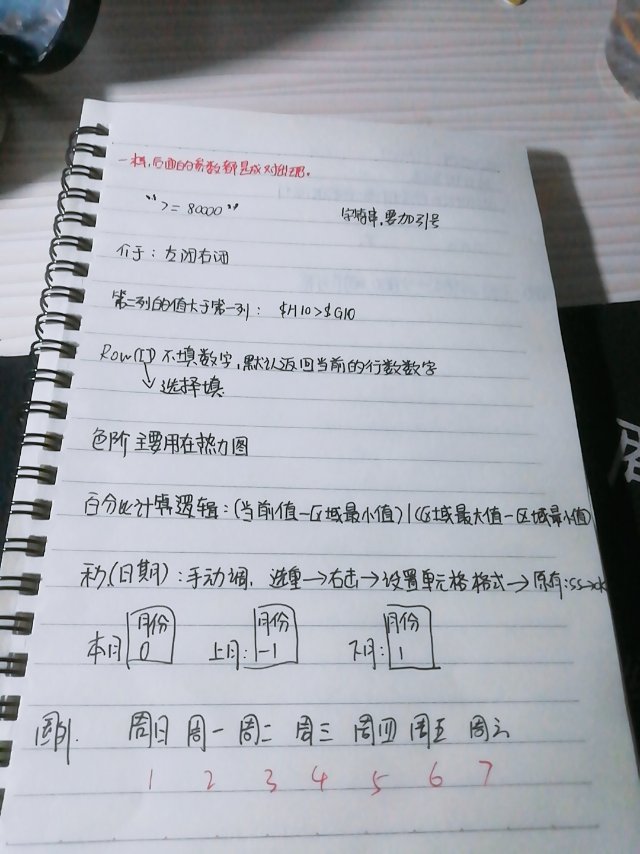 一样,后面的参数都是成对出现。
">= 80000" 字符串,要加引号
介于:左闭右闭
第二列的值大于第一列: $H10>$G10
Row() 不填数字,默认返回当前的行数数字
选择填
色阶 主要用在热力图
百分比计算逻辑:(当前值-区域最小值)/(区域最大值-区域最小值)
秒(日期):手动调, 选重→右击→设置单元格格式→原有:ss→ok
月份 月份 月份
本月 0 上月: -1 下月: 1
周日 周一 周二 周三 周四 周五 周六
1 2 3 4 5 6 7